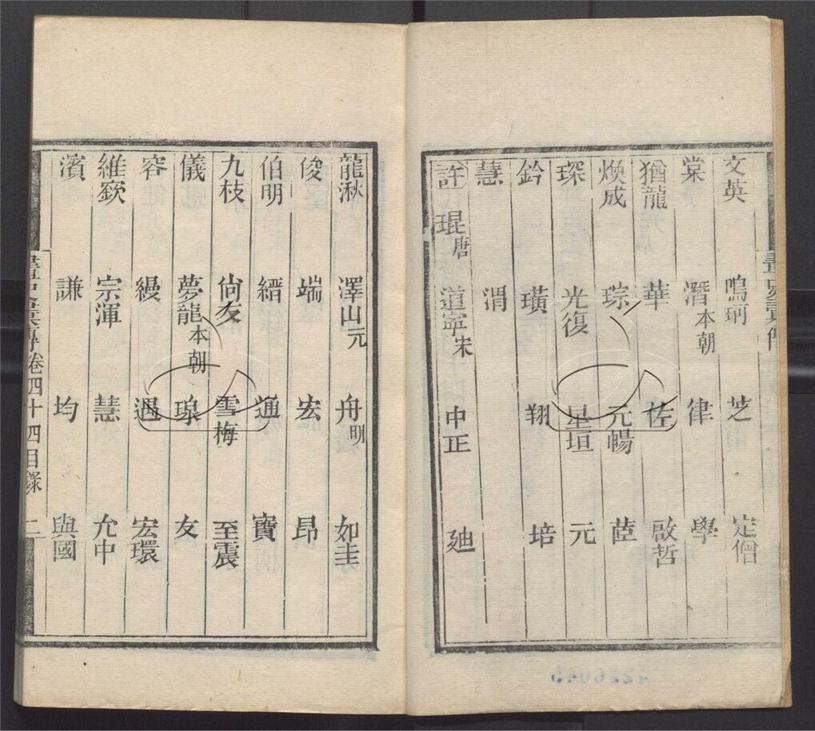 文英 鳴珂 芝 定僧
棠 潛本朝 律 學
猶龍 華 佐 啟哲
煥成 琮 元暢
琛 光復 星垣 元
鈐 璜 翔 培
慧 渭
許 琨唐 道寧宋 中正 廸
龍湫 澤山元 舟明 如圭
俊 端 宏 昂
伯明 縉 通 寶
九枝 尙友 雪梅 至震
儀 夢龍本朝 友
容 縵 遇 宏環
維嶔 宗渾 慧 允中
濱 謙 均 與國
畫史彙傳卷四十四目錄 二